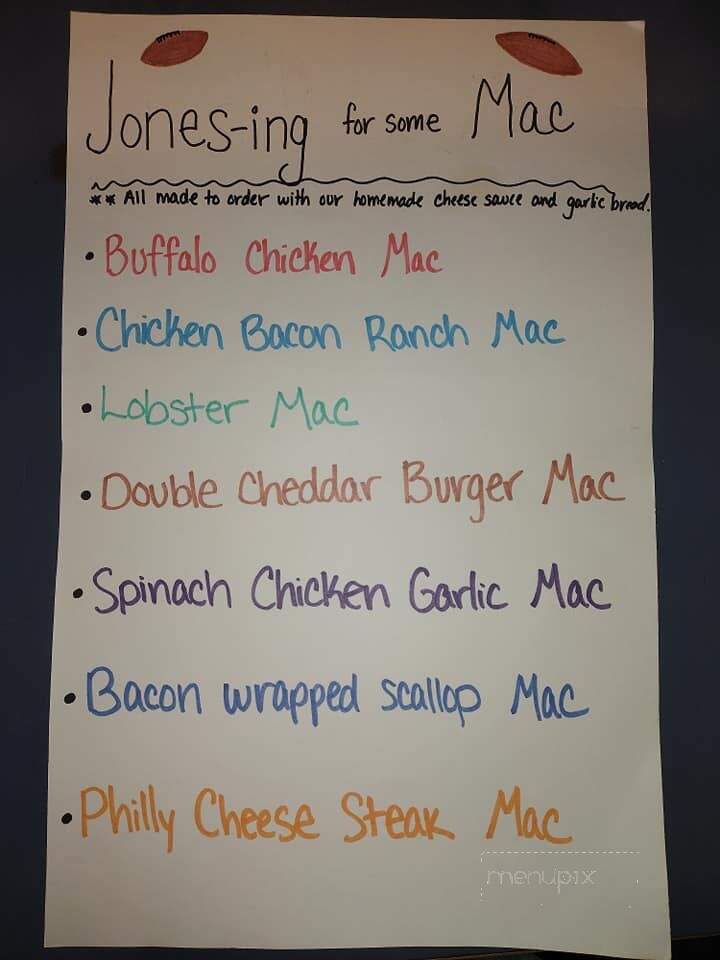 Jones-ing for some Mac
** All made to order with our homemade cheese sauce and garlic bread.
• Buffalo Chicken Mac
• Chicken Bacon Ranch Mac
• Lobster Mac
• Double Cheddar Burger Mac
• Spinach Chicken Garlic Mac
• Bacon wrapped scallop Mac
• Philly Cheese Steak Mac
menupix